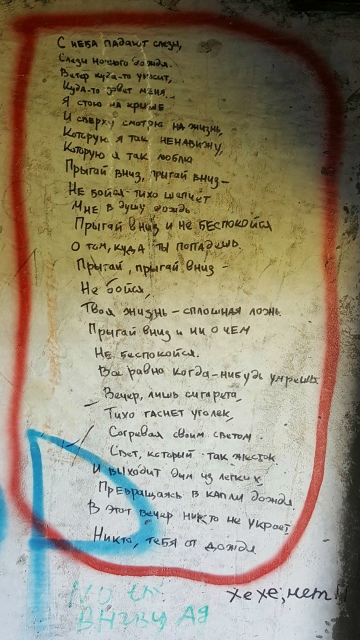 С неба падают слезы,
Слезы ночного дождя.
Ветер куда-то уносит,
Куда-то зовет меня...
Я стою на крыше
И сверху смотрю на жизнь,
Которую я так ненавижу,
Которую я так люблю
Прыгай вниз, прыгай вниз-
Не бойся-тихо шепчет
Мне в душу дождь.
Прыгай вниз и не беспокойся
О том, куда ты попадешь.
Прыгай, прыгай вниз-
Не бойся,
Твоя жизнь-сплошная ложь.
Прыгай вниз и ни о чем
Не беспокойся.
Все равно когда-нибудь умрешь
Вечер, лишь сигарета,
Тихо гаснет уголек,
Согревая своим светом.
Свет, который так жесток
И выходит дым из легких,
Превращаясь в капли дождя.
В этот вечер никто не укроет,
Никто, тебя от дождя
хехе, нет!
внизу ад